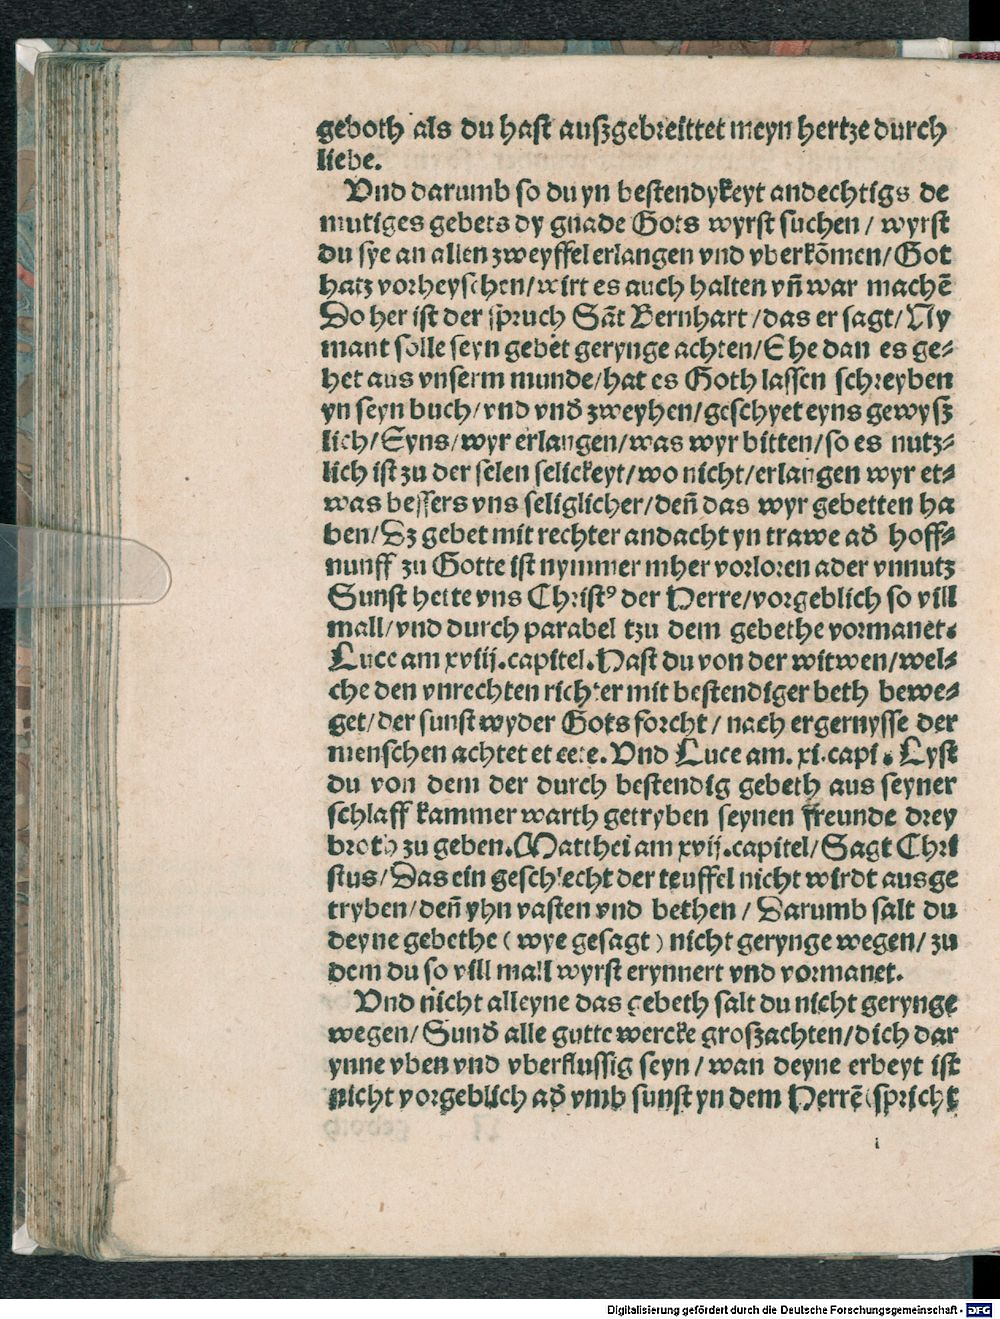 geboth als du hast auszgebreittet meyn hertze durch
liebe.
Vnd darumb so du yn bestendykeyt andechtigs de
mutiges gebets dy gnade Gots wyrst suchen / wyrst
du sye an allen zweyffel erlangen vnd vberkõmen/ Got
hatz vorheyschen/ wirt es auch halten vñ war machẽ
Do her ist der spruch Sãt Bernhart /das er sagt/ Ny
mant solle seyn gebet gerynge achten/ Ehe dan es ge⸗
het aus vnserm munde/ hat es Goth lassen schreyben
yn seyn buch/ vnd vnd̃ zweyhen/ geschyet eyns gewysz
lich/ Eyns/ wyr erlangen/ was wyr bitten/ so es nutz⸗
lich ist zu der selen selickeyt/ wo nicht/ erlangen wyr et⸗
was bessers vns seliglicher/ deñ das wyr gebetten ha
ben/ Dz gebet mit rechter andacht yn trawe ad̃ hoff⸗
nunff zu Gotte ist nymmer mher vorloren ader vnnutz
Sunst hette vns Christꝰ der Herre/ vorgeblich so vill
mall/ vnd durch parabel tzu dem gebethe vormanet.
Luce am xviij. capitel. Hast du von der witwen/ wel⸗
che den vnrechten richter mit bestendiger beth bewe⸗
get/ der sunst wyder Gots forcht / nach ergernysse der
menschen achtet et cete. Vnd Luce am. xi. capi. Lyst
du von dem der durch bestendig gebeth aus seyner
schlaff kammer warth getryben seynen freunde drey
broth zu geben. Matthei am xvij. capitel/ Sagt Chri
stus/ Das ein geschlecht der teuffel nicht wirdt ausge
tryben/ deñ yhn vasten vnd bethen / Darumb salt du
deyne gebethe ( wye gesagt ) nicht gerynge wegen/ zu
dem du so vill mall wyrst erynnert vnd vormanet.
Vnd nicht alleyne das gebeth salt du nicht gerynge
wegen/ Sund̃ alle gutte wercke groszachten/ dich dar
ynne vben vnd vberflussig seyn / wan deyne erbeyt ist
nicht vorgeblich ad̃ vmb sunst yn dem Herrẽ (spricht
i
Digitalisierung gefördert durch die Deutsche Forschungsgemeinschaft - DFG